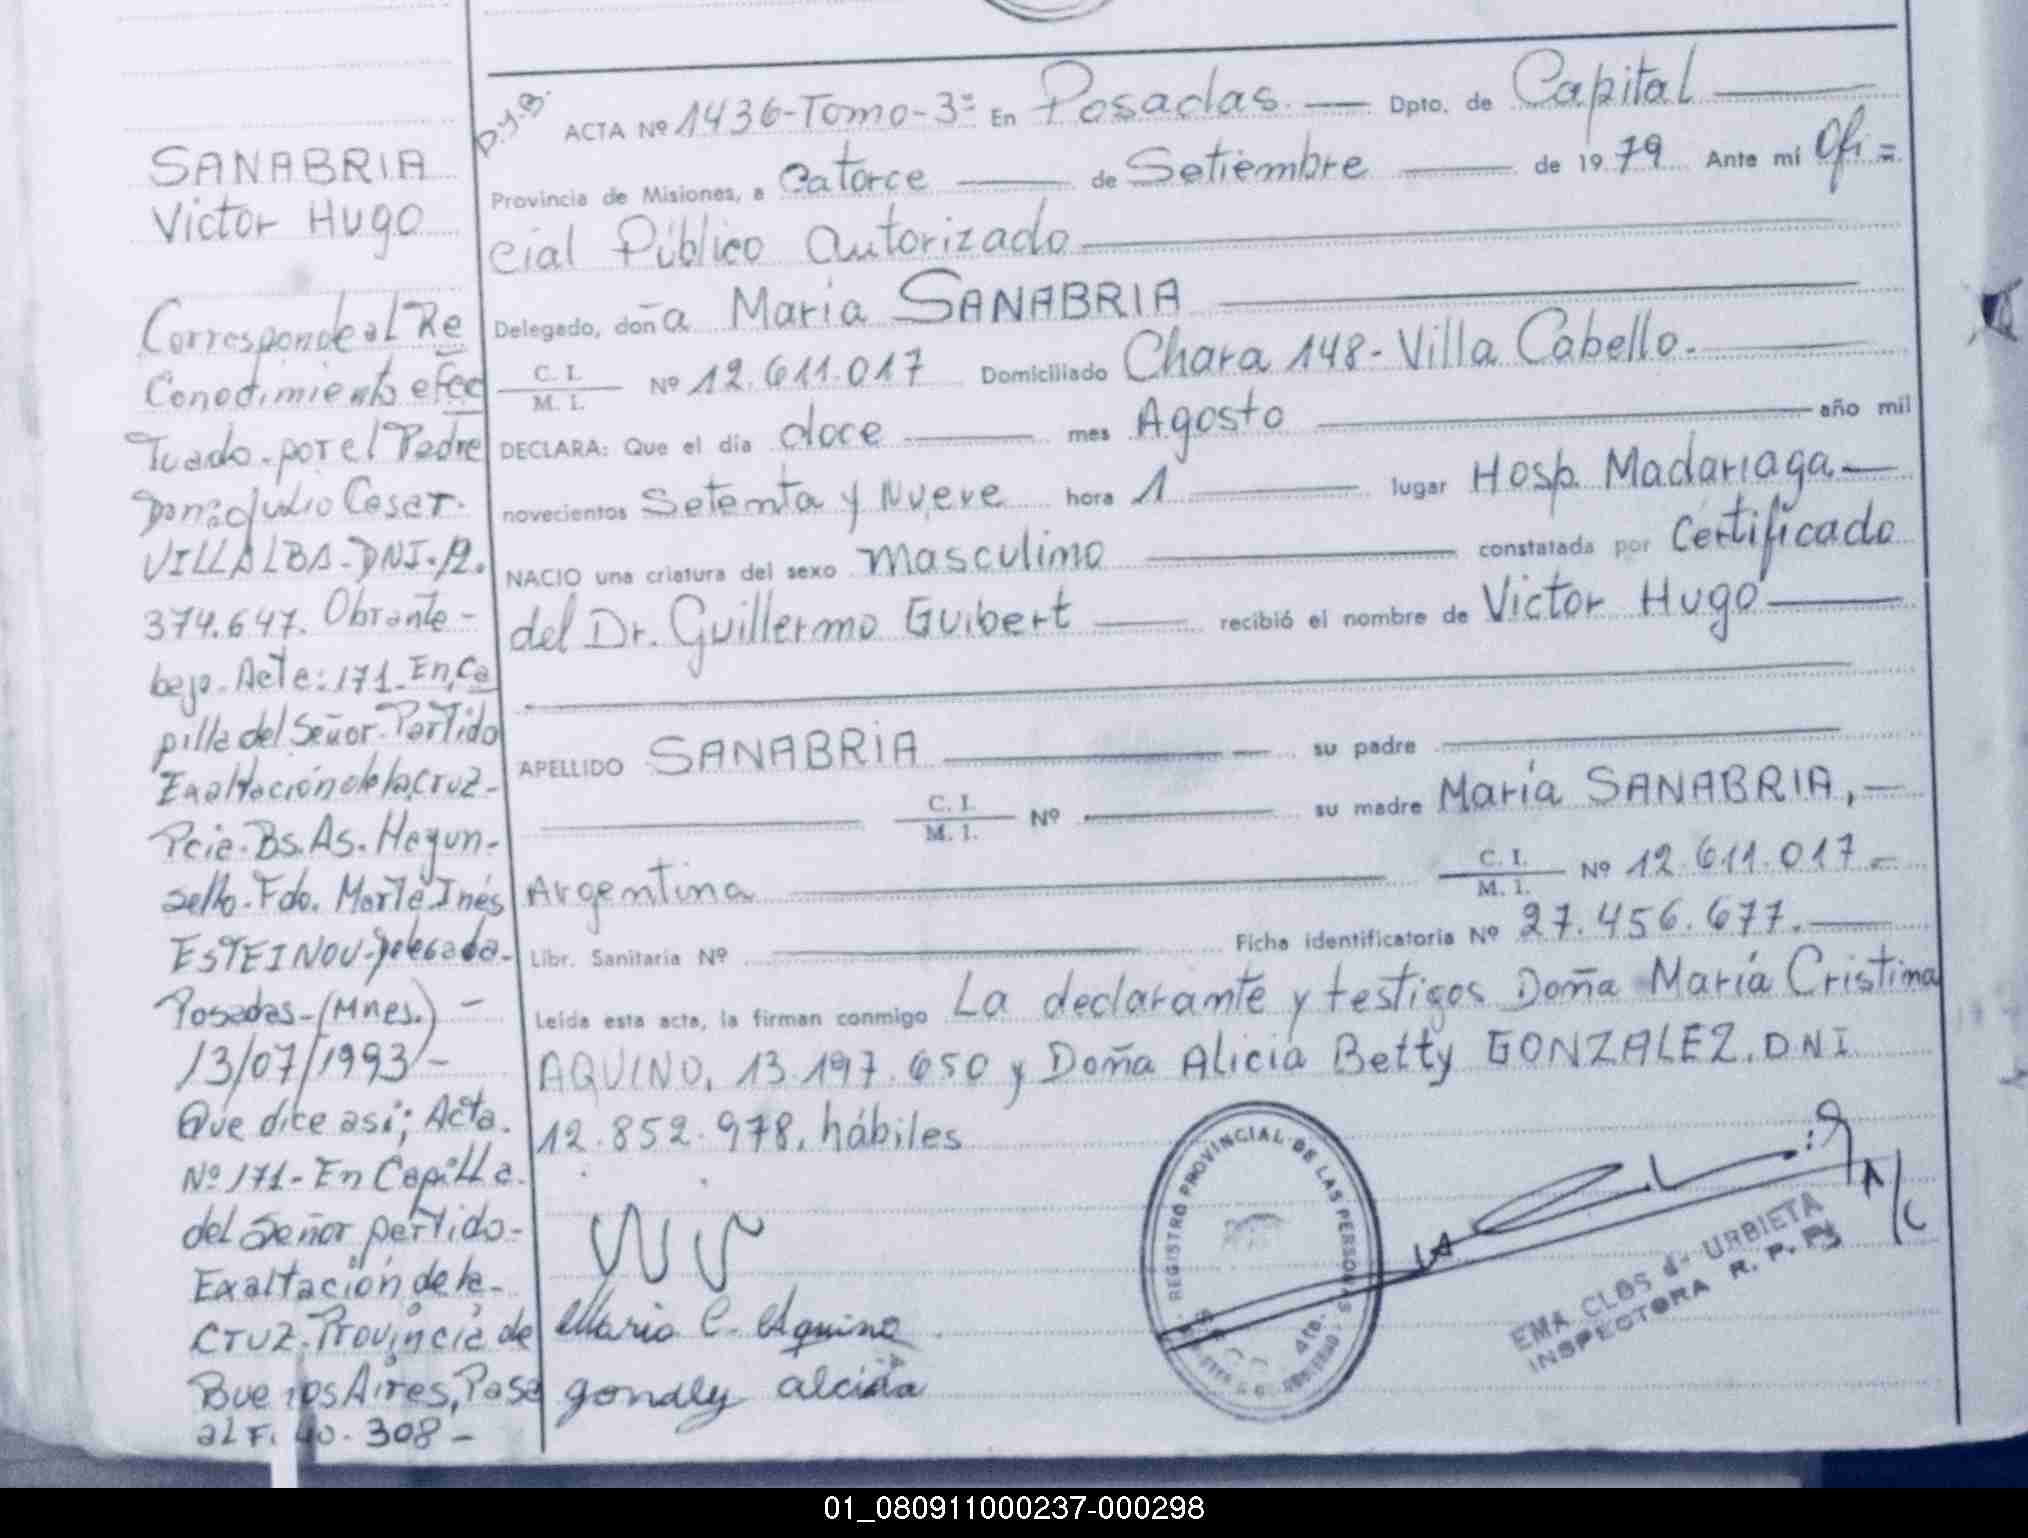 SANABRIA
Victor Hugo
Corresponde al Re
Conocimiento efec
Tuado. por el Padre
Don: Julio Cesar.
VILLALBA-DNI.12.
374.647. Obrante-
bajo. Acta: 171. En, Ca
pilla del Señor. Partido
Exaltación de la, cruz-
Pcia. Bs. As. Hay un-
sello. Fdo. Marta Inés
ESTEINOU-Delegada.
Posadas-(Mnes.) -
13/07/1993/-
Que dice así; Acta.
Nº 171- En Capilla.
del Señor partido-
Exaltación de la-
CRUZ. Provincia de
Buenos Aires, Pasa
al F. 40. 308-
D.J.B.
ACTA Nº 1436-Tomo-3º En Posadas. — Dpto. de Capital —
Provincia de Misiones, a Catorce — de Setiembre — de 1979 Ante mí Ofi=
cial Público Autorizado —
Delegado, doña Maria SANABRIA —
C. I.
M. I.
Nº 12.611.017 Domiciliado Chara 148-Villa Cabello. —
DECLARA: Que el día doce — mes Agosto — año mil
novecientos Setenta y Nueve hora 1 — lugar Hosp. Madariaga —
NACIO una criatura del sexo masculino — constatada por Certificado
del Dr. Guillermo Guibert — recibió el nombre de Victor Hugo —
APELLIDO SANABRIA — su padre —
C. I.
M. I.
Nº — su madre María SANABRIA, —
Argentina —
C. I.
M. I.
Nº 12.611.017=
Libr. Sanitaria Nº — Ficha identificatoria Nº 27.456.677. —
Leída esta acta, la firman conmigo La declarante y testigos Doña María Cristina
AQUINO, 13.197.650 y Doña Alicia Betty GONZALEZ, DNI
12.852.978, hábiles
Maria C. Aquino
REGISTRO PROVINCIAL DE LAS PERSONAS
A/C
EMA CLOS de URBIETA
INSPECTORA R. P. P.
01_080911000237-000298